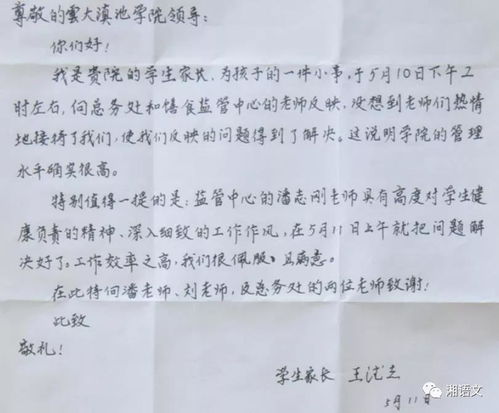 尊敬的雲大滇池学院领导：
你们好！
我是贵院的学生家长、为孩子的一件小事，于5月10日下午2
时左右，向总务处和膳食监管中心的老师反映，没想到老师们热情
地接待了我们，使我们反映的问题得到了解决。这说明学院的管理
水平确实很高。
特别值得一提的是：监管中心的潘志刚老师具有高度对学生健
康负责的精神、深入细致的工作作风，在5月11日上午就把问题解
决好了。工作效率之高，我们很佩服、且满意。
在此特向潘老师、刘老师，及总务处的两位老师致谢！
此致
敬礼！
学生家长 王
5月11日
湘语文